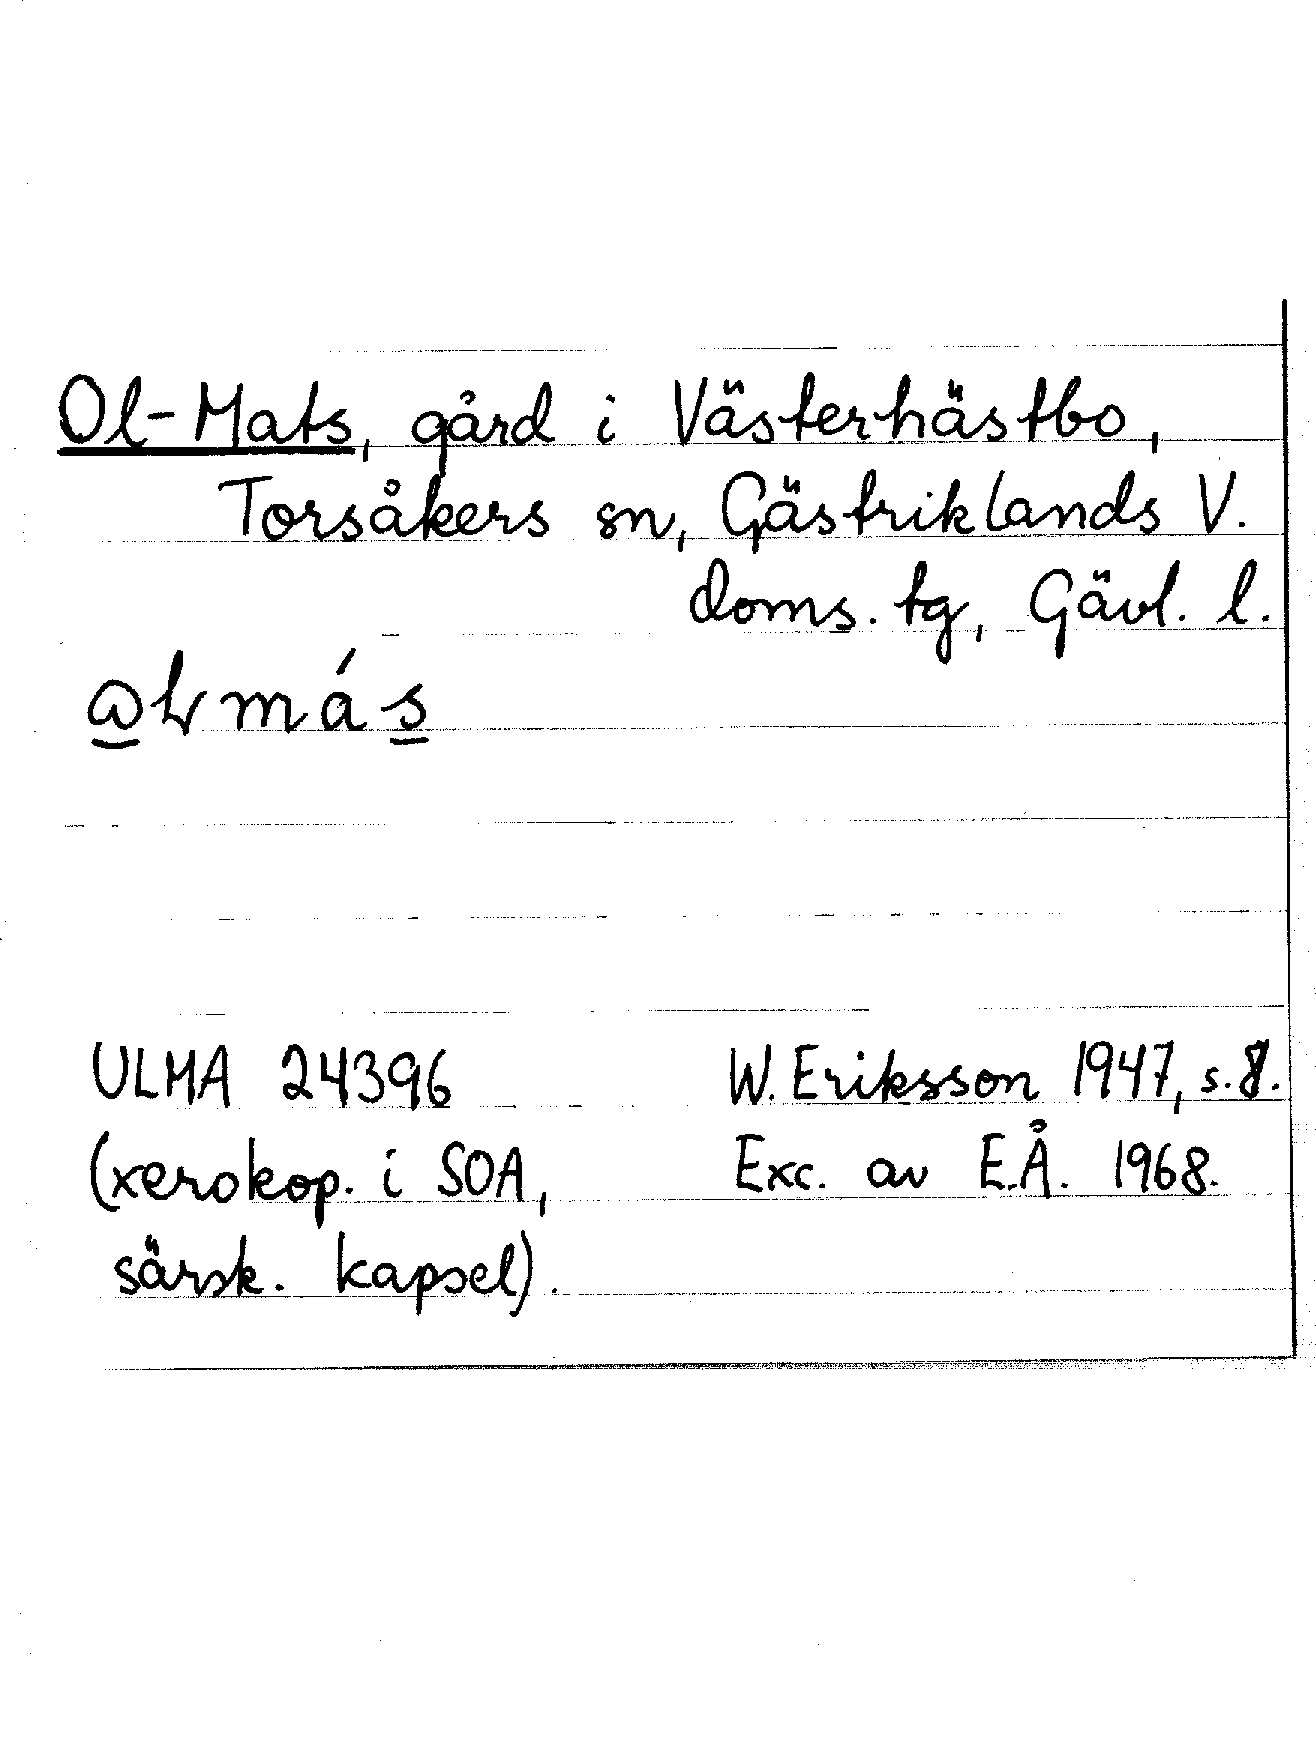 Ol-Mats, gård i Västerhästbo,
Torsåkers sn, Gästriklands V.
doms. tg, Gävl. l.
ULMA 24396 W. Eriksson 1947, s. 8.
(xerokop. i SOA, Exc. av E.Å. 1968.
särsk. kapsel).